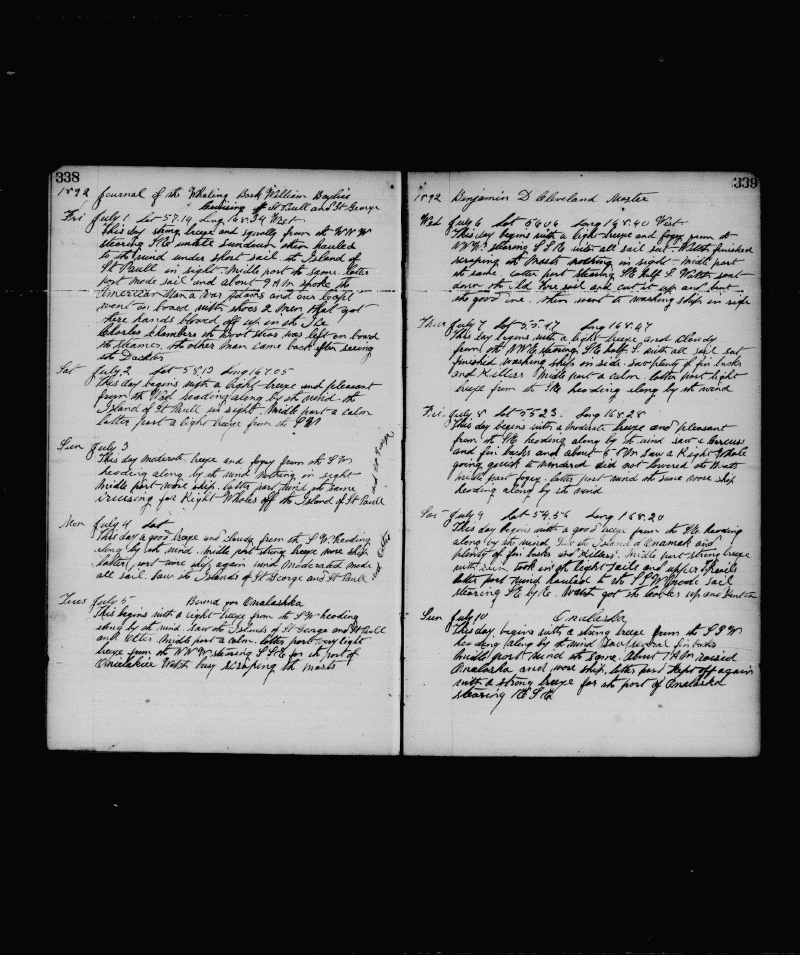 338
1892 Journal of the Whaling Bark William Baylies
Cruising off St Paull and St George
Fri July 1 Lat 57.14 Long 168.34 West
This day strong breeze and squally from the NNW
stearing SE untill sundown then hauled
to the wind under short sail the Island of
St Paull in sight. Midle part the same. latter
part made sail and about 9 AM spoke the
American Man a War Adams and our Capt
went on board with shoes 2 men that got
there hands blowed off up in the Ice
Charles Chambers the was left on board
the steamer the other man came back after seeing
the Docktor
Sat July 2 Lat 58.13 Long 169.05
This day begins with a light breeze and pleasant
from the Wd heading along by the wind. the
Island of St Paull in sight. Midle part a calm
latter part a light breeze from the SW
Sun July 3
This day moderate breeze and fogey from the SW
heading along by the wind nothing in sight
Midle part wore ship. latter part wind the same
cruising for Right Whales off the Island of St Paull
and St George
Mon July 4 Lat
This day a good breeze and cloudy from the SW heading
along by the wind. Midle part strong breeze wore ship
latter part wore ship again wind moderated made
all sail. Saw the Islands of St George and St Paull
and Otter
Tues July 5 Bound for Onalashka
This begins with a light breeze from the SW heading
along by the wind. Saw the Islands of St George and St Paull
and Otter. Midle part a calm. latter part very light
breeze from the NNW stearing SSE for the port of
Watch busy scraping the masts
339
1892 Benjamin D Cleveland Master
Wed July 6 Lat 56.06 Long 168.40 West
This day begins with a light breeze and fogey from the
stearing SSE with all sail set. Watch finished
scraping the Masts nothing in sight. Midle part
the same. latter part stearing SE half S. Watch sent
down the old fore sail and cut it up and bent
the good one. then went to washing ship in side
Thur July 7 Lat 55.47 Long 168.47
This day begins with a light breeze and cloudy
from the NNW stearing SE half S. with all sail set
finished washing ship in side. Saw plenty of fin backs
and Killers Midle part a calm. latter part light
breeze from the heading along by the wind
Fri July 8 Lat 55.23 Long 168.28
This day begins with a moderate breeze and pleasant
from the heading along by the wind saw a
and fin backs and about 5 PM saw a Right Whale
going quick to windward did not lowered the boats
midle part fogey. latter part wind the same wore ship
heading along by the wind
Sat July 9 Lat 54.56 Long 168.20
This day begins with a good breeze from the heading
along by the wind. the Island a Onamak and
plenty of fin backs and Killers. Midle part strong breeze
with rain took in the light sails and upper
latter part wind hauled to the SSW made sail
stearing E by S. Watch got the up and bent on
Sun July 10 Onalaska
This day begins with a strong breeze from the SSW
heading along by the wind saw several fin backs
Midle part wind the same. About 7 AM raised
Onalaska and wore ship. latter part kept off again
with a strong breeze for the port of Onalaska
stearing ESE